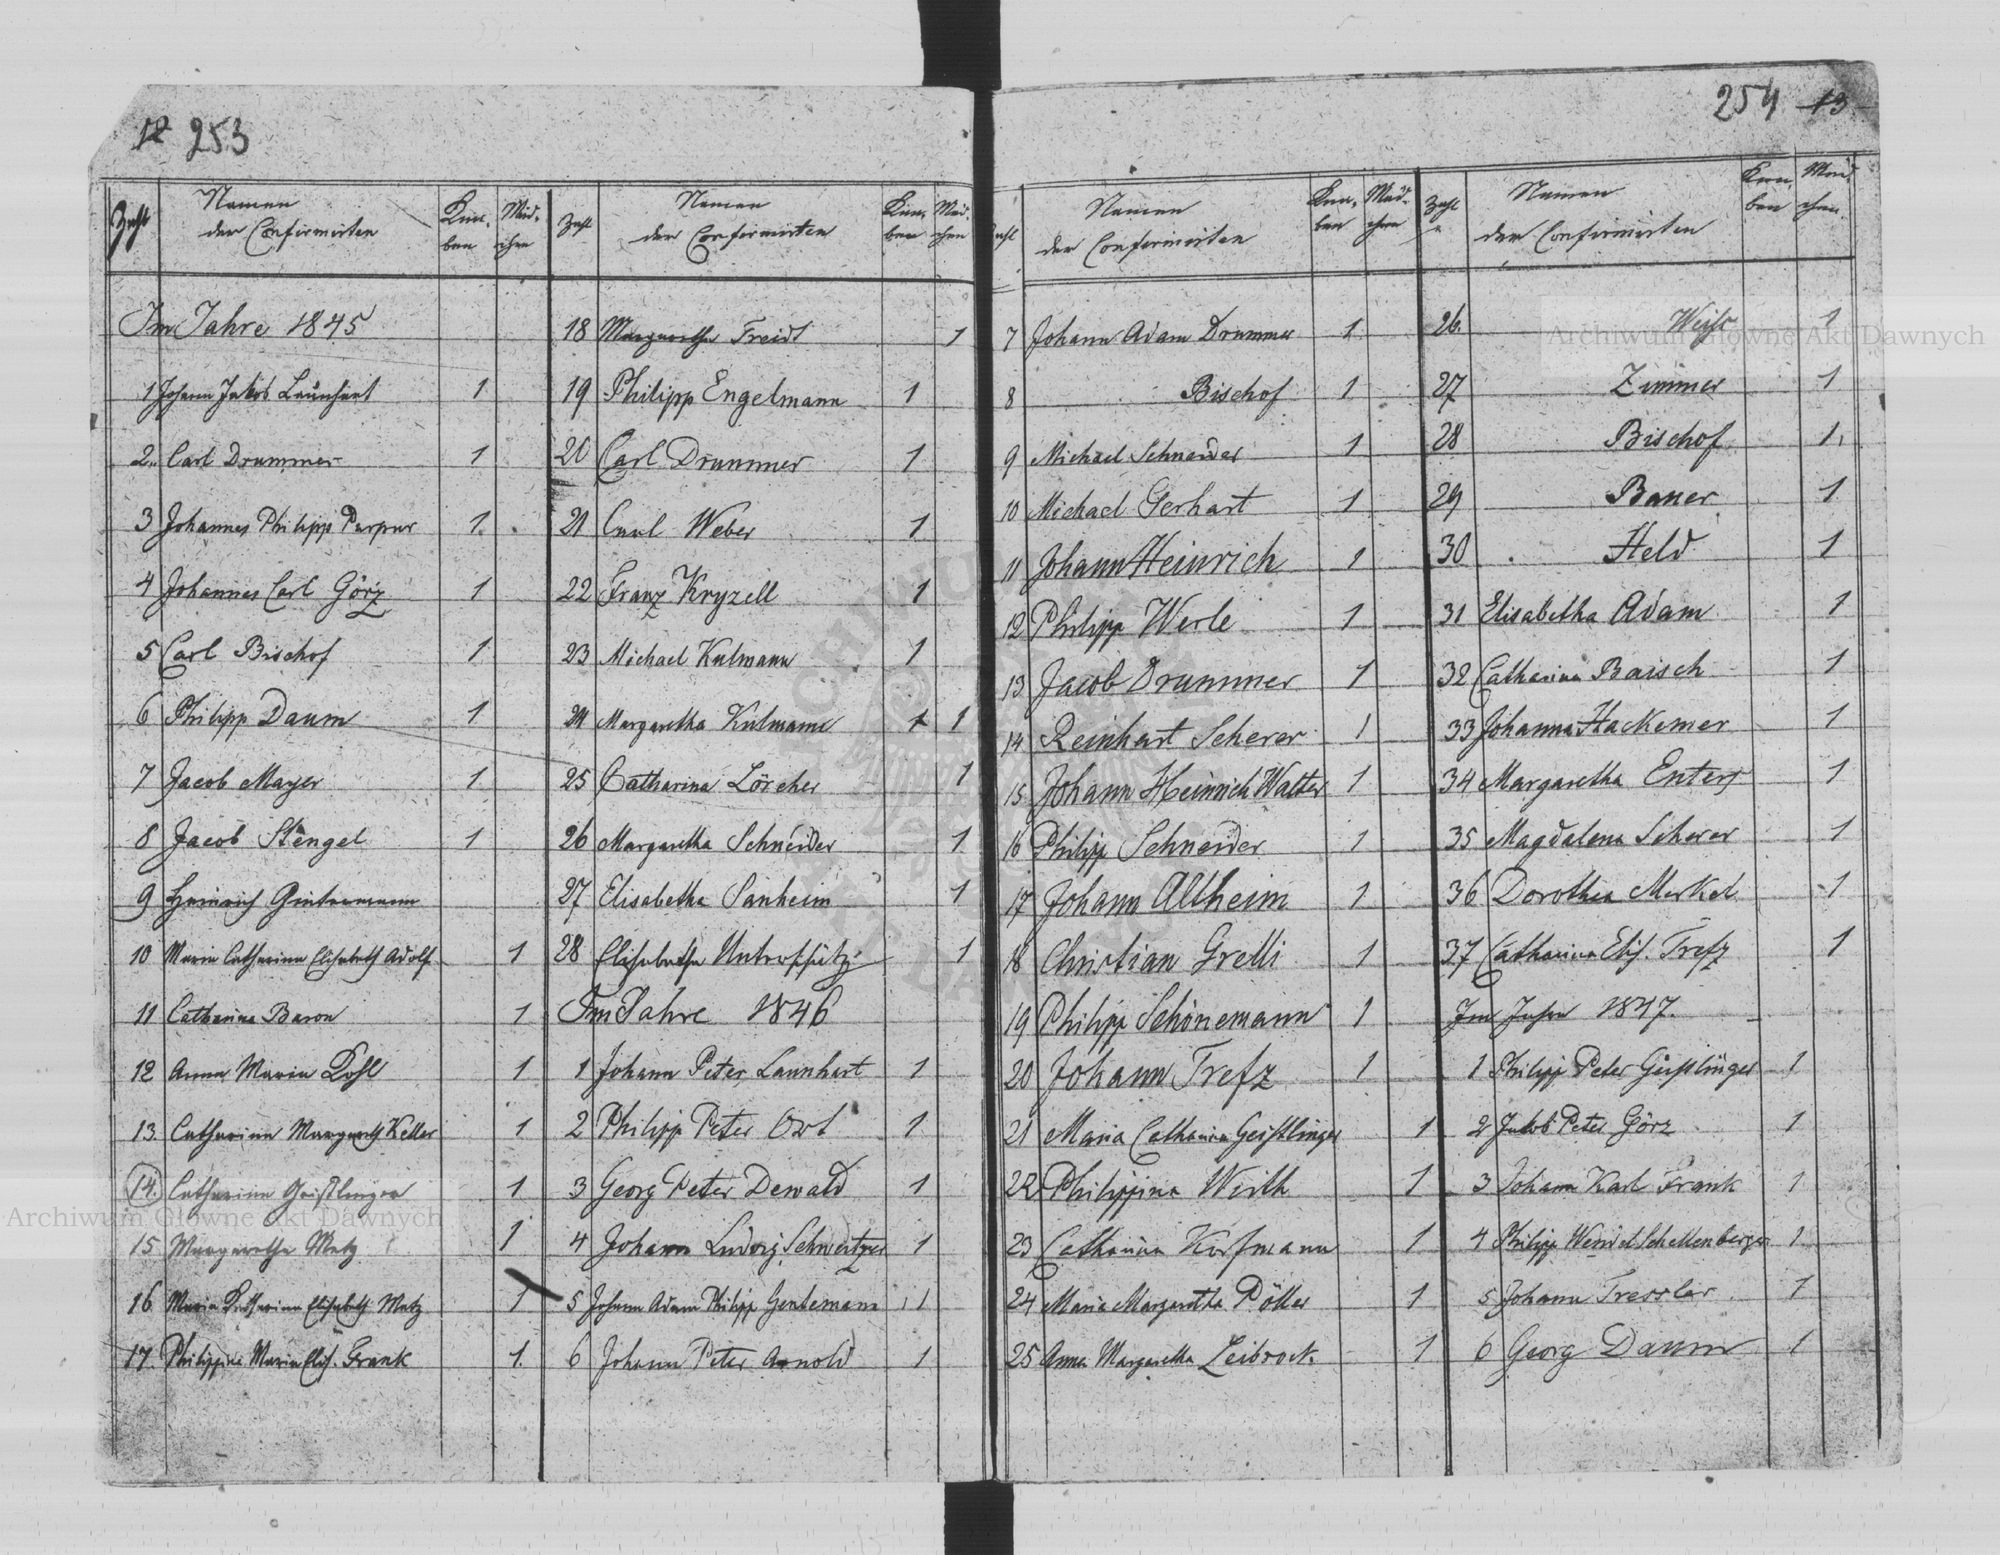 12 253
Zahl Namen der Confirmirten Knaben Mädchen
Im Jahre 1845
1 Johann Jakob Launhart 1
2. Carl Drummer 1
3 Johannes Philipp Purpur 1
4 Johannes Carl Görz 1
5 Carl Bischof 1
6 Philipp Daum 1
7 Jacob Mayer 1
8 Jacob Stengel 1
9 Heinrich Gintermann
10 Maria Catharina Elisabeth Adolf 1
11 Catharina Baron 1
12 Anna Maria Kohl 1
13. Catharina Margareth Keller 1
14. Catharina Geistlinger 1
15 Margaretha Metz 1
16 Maria Catharina Elisabeth Metz 1
17. Philippine Maria Elis. Frank 1.
Zahl Namen der Confirmirten Knaben Mädchen
18 Margaretha Freidt 1
19 Philipp Engelmann 1
20 Carl Drummer 1
21 Carl Weber 1
22 Franz Kryzell 1
23 Michael Kulmann 1
24 Margaretha Kulmann 1 1
25 Catharina Lörcher 1
26 Margaretha Schneider 1
27 Elisabetha Sanheim 1
28 Elisabetha 1
Im Jahre 1846
1 Johann Peter Launhart 1
2 Philipp Peter Ort 1
3 Georg Peter Dewald 1
4 Johann Ludwig Schweitzer 1
5 Johann Adam Philipp Gentemann 1
6 Johann Peter Arnold 1
254 13
Zahl Namen der Confirmirten Knaben Mädchen
7 Johann Adam Drummer 1
8 Bischof 1
9 Michael Schneider 1
10 Michael Gerhart 1
11 Johann Heinrich 1
12 Philipp Werle 1
13 Jacob Drummer 1
14 Reinhart Scherer 1
15 Johann Heinrich Walter 1
16 Philipp Schneider 1
17 Johann Altheim 1
18 Christian Grelli 1
19 Philipp Schönemann 1
20 Johann Trefz 1
21 Maria Catharina Geistlinger 1
22 Philippina Wirth 1
23 Catharina Korfmann 1
24 Maria Margaretha Döller 1
25 Anna Margaretha Leibrock. 1
Zahl Namen der Confirmirten Knaben Mädchen
26. Weiß 1
27 Zimmer 1
28 Bischof 1
29 Bauer 1
30 Held 1
31 Elisabetha Adam 1
32 Catharina Baisch 1
33 Johanna Hackemer 1
34 Margaretha Enters 1
35 Magdalena Scherer 1
36 Dorothea Merkel 1
37 Catharina Elis. Trefz 1
Im Jahre 1847.
1 Philipp Peter Geistlinger 1
2 Jakob Peter Görz 1
3 Johann Karl Frank 1
4 Philipp Wendel Schellenberger 1
5 Johann Tressler 1
6 Georg Daum 1
Archiwum Główne Akt Dawnych
Archiwum Główne Akt Dawnych